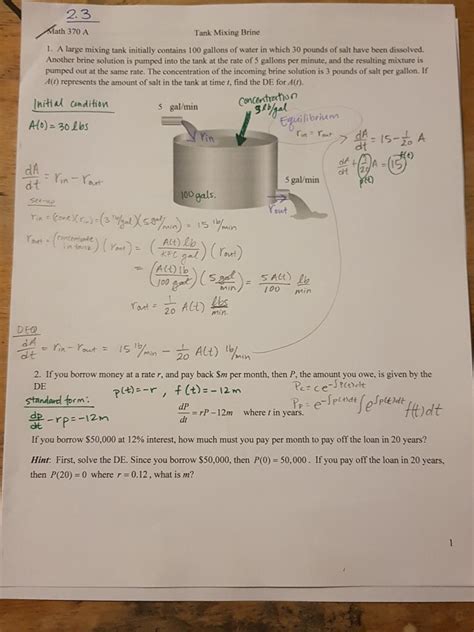 2.3
Math 370 A Tank Mixing Brine
1. A large mixing tank initially contains 100 gallons of water in which 30 pounds of salt have been dissolved.
Another brine solution is pumped into the tank at the rate of 5 gallons per minute, and the resulting mixture is
pumped out at the same rate. The concentration of the incoming brine solution is 3 pounds of salt per gallon. If
A(t) represents the amount of salt in the tank at time t, find the DE for A(t).
Initial condition
A(0) = 30 lbs
5 gal/min
Concentration
3 lb/gal
Equilibrium
r in = r out
r in
100 gals.
5 gal/min
r out
dA/dt = 15 - 1/20 A
dA/dt + (1/20)A = (15) f(t)
p(t)
dA/dt = r in - r out
r in = (conc)(r in) = (3 lb/gal)(5 gal/min) = 15 lb/min
r out = (concentrate in tank)(r out) = (A(t) lb / gal)(r out)
= (A(t) lb / 100 gal)(5 gal/min) = 5 A(t)/100 lb/min
r out = 1/20 A(t) lbs/min.
DEQ
dA/dt = r in - r out = 15 lb/min - 1/20 A(t) lb/min
2. If you borrow money at a rate r, and pay back $m per month, then P, the amount you owe, is given by the
DE
p(t) = -r, f(t) = -12m
Pc = c e^-∫p(t)dt
Pp = e^-∫p(t)dt ∫e^∫p(t)dt f(t)dt
standard form:
dP/dt - rp = -12m
dP/dt = rP - 12m where t in years.
If you borrow $50,000 at 12% interest, how much must you pay per month to pay off the loan in 20 years?
Hint: First, solve the DE. Since you borrow $50,000, then P(0) = 50,000. If you pay off the loan in 20 years,
then P(20) = 0 where r = 0.12, what is m?
1